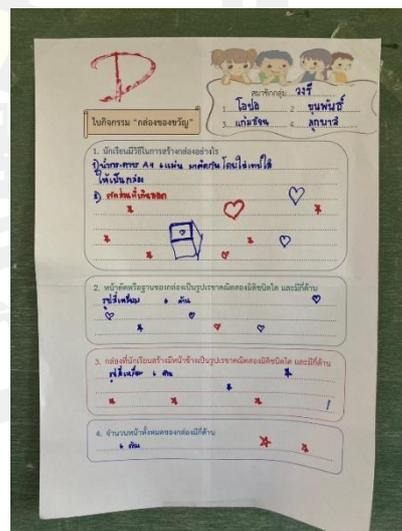 D
สมาชิกกลุ่ม วงรี
1. โอปอ 2. ขุนพันธ์
3. แก้มซ้อน 4. ลูกบาส
ใบกิจกรรม "กล่องของขวัญ"
1. นักเรียนมีวิธีในการสร้างกล่องอย่างไร
1) นำกระดาษ A4 6 แผ่น มาติดกัน โดยใช้เทปใส
ให้เป็นกล่อง
2) ตัดส่วนที่เกินออก
2. หน้าตัดหรือฐานของกล่องเป็นรูปเรขาคณิตสองมิติชนิดใด และมีกี่ด้าน
รูปสี่เหลี่ยม 6 ด้าน
3. กล่องที่นักเรียนสร้างมีหน้าข้างเป็นรูปเรขาคณิตสองมิติชนิดใด และมีกี่ด้าน
รูปสี่เหลี่ยม 6 ด้าน
4. จำนวนหน้าทั้งหมดของกล่องมีกี่ด้าน
6 ด้าน